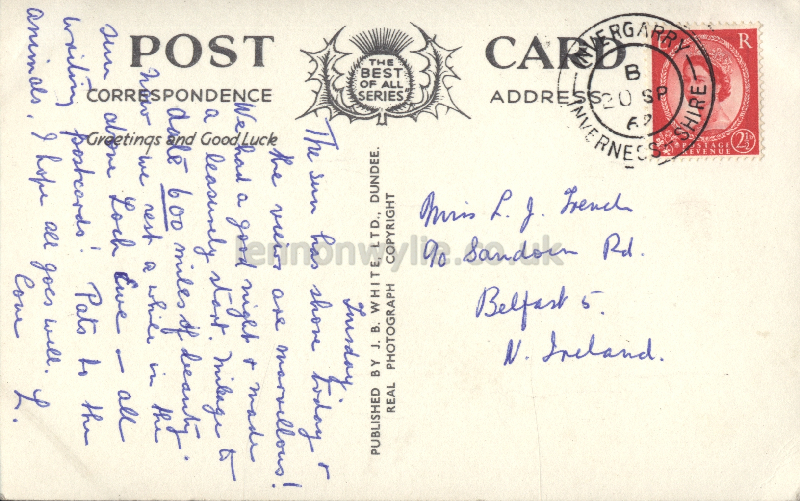 POST CARD
THE
BEST
OF ALL
SERIES
CORRESPONDENCE
ADDRESS
Greetings and Good Luck
INVERGARRY
B
20 SP
INVERNESS-SHIRE
R
POSTAGE
REVENUE
2½D
Tuesday
The sun has shone today &
the views are marvellous!
We had a good night & made
a leisurely start. Mileage to
date 600 miles of beauty.
Now we rest a while in the
sun above Loch – all
writing postcards! Pats to the
animals, I hope all goes well.
Love L.
PUBLISHED BY J. B. WHITE, LTD., DUNDEE.
REAL PHOTOGRAPH COPYRIGHT
Miss L. J. French
Rd.
Belfast 5.
N. Ireland.
lennonwylie.co.uk